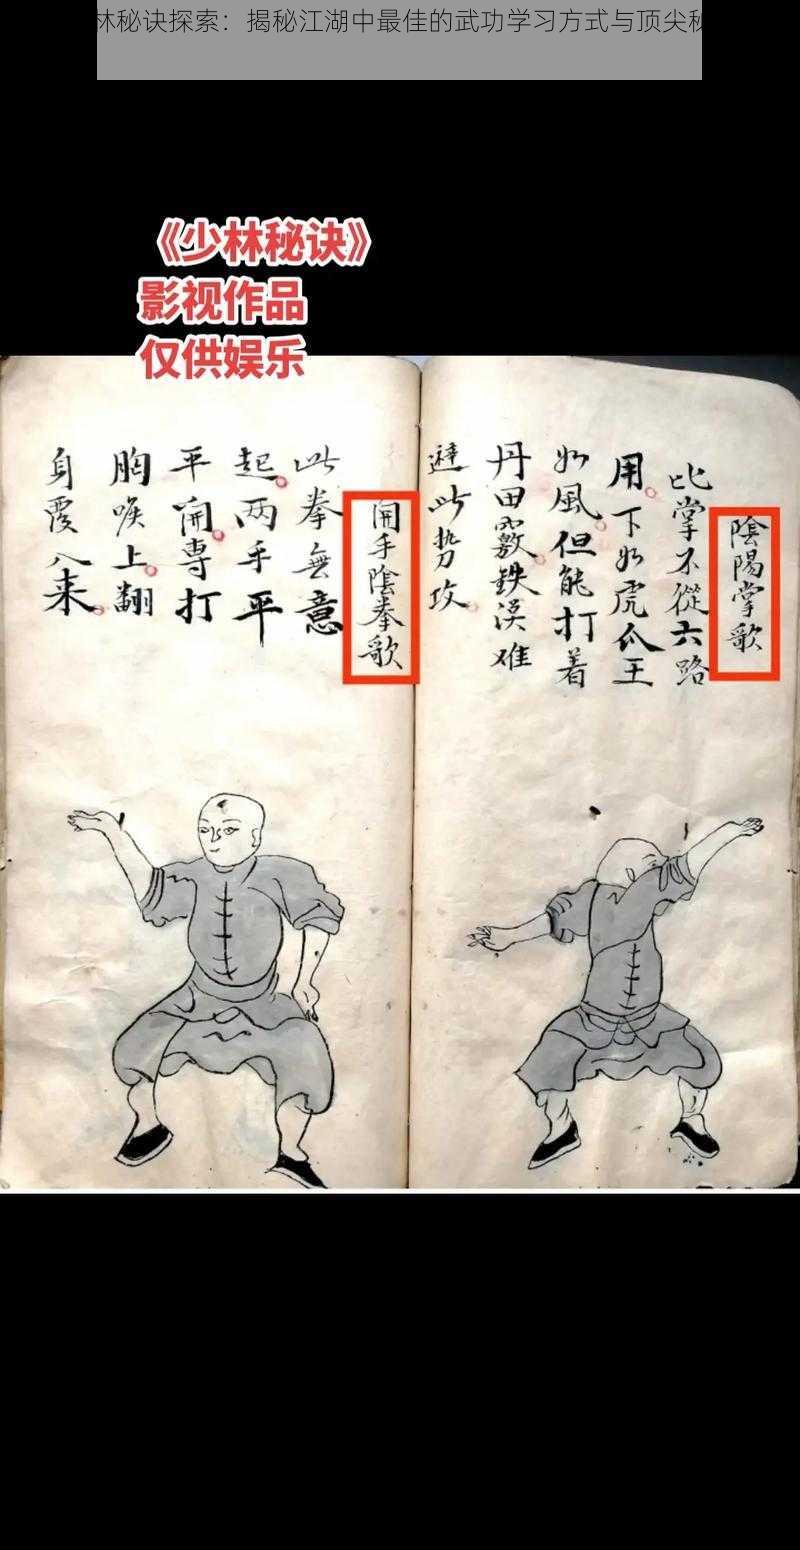 林秘诀探索：揭秘江湖中最佳的武功学习方式与顶尖秘
《少林秘诀》
影视作品
仅供娱乐
陰陽掌歌
比掌不從六路
用。下如虎爪王
如風。但能打着
丹田竅。鉄漢难
避此勢攻。
開手陰拳歌
此拳無意
起。两手平
平開。専打
胸喉上。翻
身覆入来。